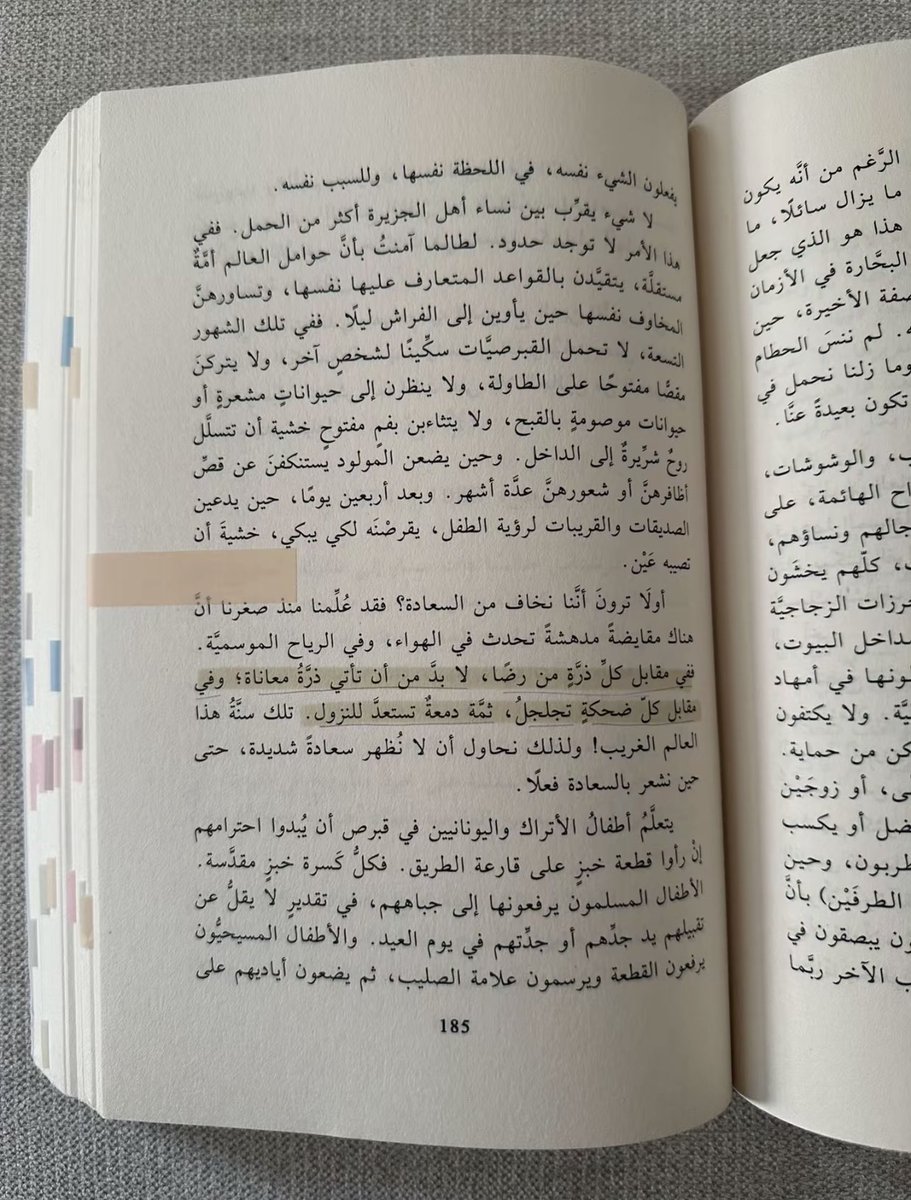 يفعلون الشيء نفسه، في اللحظة نفسها، وللسبب نفسه.
لا شيء يقرِّب بين نساء أهل الجزيرة أكثر من الحمل. ففي
هذا الأمر لا توجد حدود. لطالما آمنتُ بأنَّ حوامل العالم أمَّةٌ
مستقلَّة، يتقيَّدن بالقواعد المتعارف عليها نفسها، وتساورهنَّ
المخاوف نفسها حين يأوين إلى الفراش ليلًا. ففي تلك الشهور
التسعة، لا تحمل القبرصيَّات سكِّينًا لشخصٍ آخر، ولا يتركنَ
مقصًّا مفتوحًا على الطاولة، ولا ينظرن إلى حيواناتٍ مشعرةٍ أو
حيوانات موصومةٍ بالقبح، ولا يتثاءبن بفمٍ مفتوحٍ خشية أن تتسلَّل
روحٌ شرِّيرةٌ إلى الداخل. وحين يضعن المولود يستنكفنَ عن قصِّ
أظافرهنَّ أو شعورهنَّ عدَّة أشهر. وبعد أربعين يومًا، حين يدعين
الصديقات والقريبات لرؤية الطفل، يقرصْنَه لكي يبكي، خشيةَ أن
تصيبه عَيْن.
أولَا ترونَ أنَّنا نخاف من السعادة؟ فقد عُلِّمنا منذ صغرنا أنَّ
هناك مقايضةً مدهشةً تحدث في الهواء، وفي الرياح الموسميَّة.
ففي مقابل كلِّ ذرَّةٍ من رضًا، لا بدَّ من أن تأتي ذرَّةُ معاناة؛ وفي
مقابل كلّ ضحكةٍ تجلجلُ، ثمَّة دمعةٌ تستعدَّ للنزول. تلك سنَّةُ هذا
العالم الغريب! ولذلك نحاول أن لا نُظهر سعادةً شديدة، حتى
حين نشعر بالسعادة فعلًا.
يتعلَّمُ أطفالُ الأتراك واليونانيين في قبرص أن يُبدوا احترامهم
إنْ رأوا قطعة خبزٍ على قارعة الطريق. فكلُّ كَسرة خبزٍ مقدَّسة.
الأطفال المسلمون يرفعونها إلى جباههم، في تقديرٍ لا يقلُّ عن
تقبيلهم يد جدِّهم أو جدِّتهم في يوم العيد. والأطفال المسيحيُّون
يرفعون القطعة ويرسمون علامة الصليب، ثم يضعون أياديهم على
185
الرَّغم من أنَّه يكون
ما يزال سائلًا، ما
هذا هو الذي جعل
البحَّارة في الأزمان
صفة الأخيرة، حين
ه. لم ننسَ الحطام
وما زلنا نحمل في
تكون بعيدةً عنَّا.
ب، والوشوشات،
اح الهائمة، على
جالهم ونساؤهم،
ب، كلّهم يخشَون
خرزات الزجاجيَّة
مداخل البيوت،
ونها في أمهاد
يَّة. ولا يكتفون
كن من حماية.
ى، أو زوجَيْن
فضل أو يكسب
طربون، وحين
الطرفَيْن) بأنَّ
ون يبصقون في
ب الآخر ربَّما